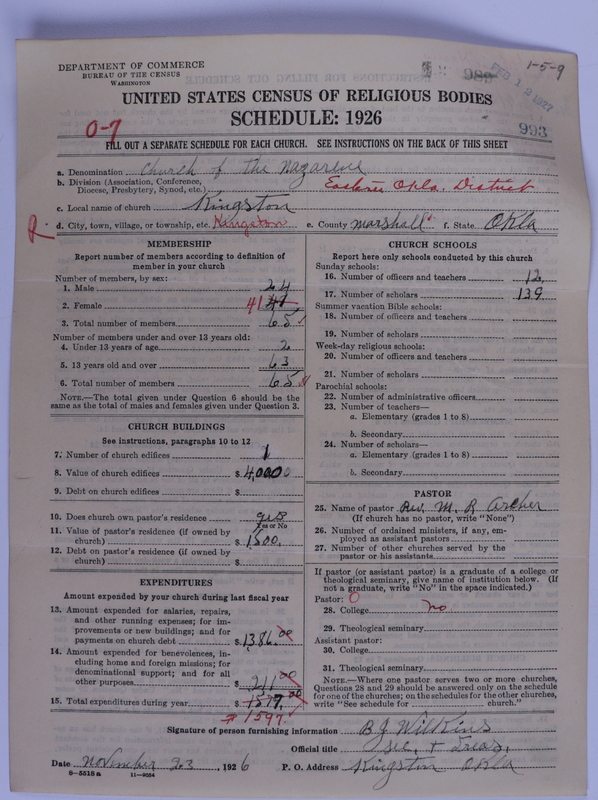 DEPARTMENT OF COMMERCE
BUREAU OF THE CENSUS
WASHINGTON
1-5-9
FEB 12 1927
993
UNITED STATES CENSUS OF RELIGIOUS BODIES
SCHEDULE: 1926
0-7
FILL OUT A SEPARATE SCHEDULE FOR EACH CHURCH. SEE INSTRUCTIONS ON THE BACK OF THIS SHEET
a. Denomination Church of the Nazarene
b. Division (Association, Conference, Diocese, Presbytery, Synod, etc.) Eastern Okla. District
c. Local name of church Kingston
R d. City, town, village, or township, etc. Kingston e. County Marshall f. State Okla
MEMBERSHIP
Report number of members according to definition of
member in your church
Number of members, by sex:
1. Male 24
2. Female 41
3. Total number of members 65
Number of members under and over 13 years old:
4. Under 13 years of age 2
5. 13 years old and over 63
6. Total number of members 65
NOTE.—The total given under Question 6 should be the
same as the total of males and females given under Question 3.
CHURCH BUILDINGS
See instructions, paragraphs 10 to 12
7. Number of church edifices 1
8. Value of church edifices $ 4,000
9. Debt on church edifices $
10. Does church own pastor's residence yes
Yes or No
11. Value of pastor's residence (if owned by
church) $ 1,500.
12. Debt on pastor's residence (if owned by
church) $
EXPENDITURES
Amount expended by your church during last fiscal year
13. Amount expended for salaries, repairs,
and other running expenses; for im-
provements or new buildings; and for
payments on church debt $ 1386.00
14. Amount expended for benevolences, in-
cluding home and foreign missions; for
denominational support; and for all
other purposes $ 211.00
15. Total expenditures during year $ 1577.00
$ 1597.
CHURCH SCHOOLS
Report here only schools conducted by this church
Sunday schools:
16. Number of officers and teachers 12
17. Number of scholars 139
Summer vacation Bible schools:
18. Number of officers and teachers
19. Number of scholars
Week-day religious schools:
20. Number of officers and teachers
21. Number of scholars
Parochial schools:
22. Number of administrative officers
23. Number of teachers—
a. Elementary (grades 1 to 8)
b. Secondary
24. Number of scholars—
a. Elementary (grades 1 to 8)
b. Secondary
PASTOR
25. Name of pastor Rev. M. R Archer
(If church has no pastor, write "None")
26. Number of ordained ministers, if any, em-
ployed as assistant pastors
27. Number of other churches served by the
pastor or his assistants
If pastor (or assistant pastor) is a graduate of a college or
theological seminary, give name of institution below. (If
not a graduate, write "No" in the space indicated.)
Pastor: 0
28. College no
29. Theological seminary
Assistant pastor:
30. College
31. Theological seminary
NOTE.—Where one pastor serves two or more churches,
Questions 28 and 29 should be answered only on the schedule
for one of the churches; on the schedules for the other churches,
write "See schedule for church."
Signature of person furnishing information B J Wilkins
Official title Sec. + Treas.
Date November 23, 1926 P. O. Address Kingston Okla
8-5518 a 11-9054